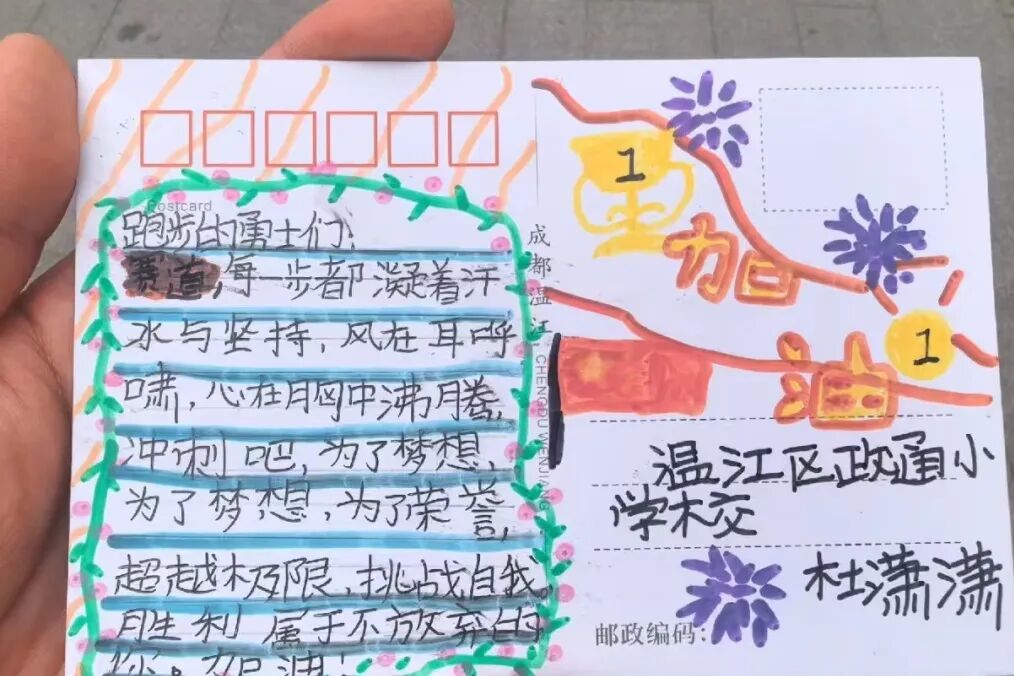 Postcard
跑步的勇士们:
赛道,每一步都凝着汗
水与坚持,风在耳呼
啸,心在胸中沸腾,
冲刺吧,为了梦想,
为了梦想,为了荣誉,
超越极限,挑战自我。
胜利属于不放弃的
你。加油!
成都温江 CHENGDU WENJIANG
1
加
油
1
温江区政通小
学校
杜潇潇
邮政编码: